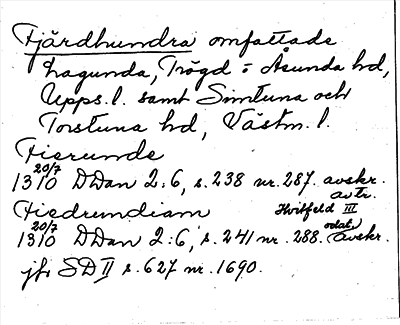 Fjärdhundra omfattade
Lagunda, Trögd o Åsunda hd,
Upps. l. samt Simtuna och
Torstuna hd, Västm. l.
Fierunde
1310 20/7 DDan 2:6, s. 238 nr. 287. avskr.
av tr.
Fiedrundiam Hvitfeld III
1310 20/7 DDan 2:6, s. 241 nr. 288. odat. avskr.
jfr SD II s. 627 nr. 1690.